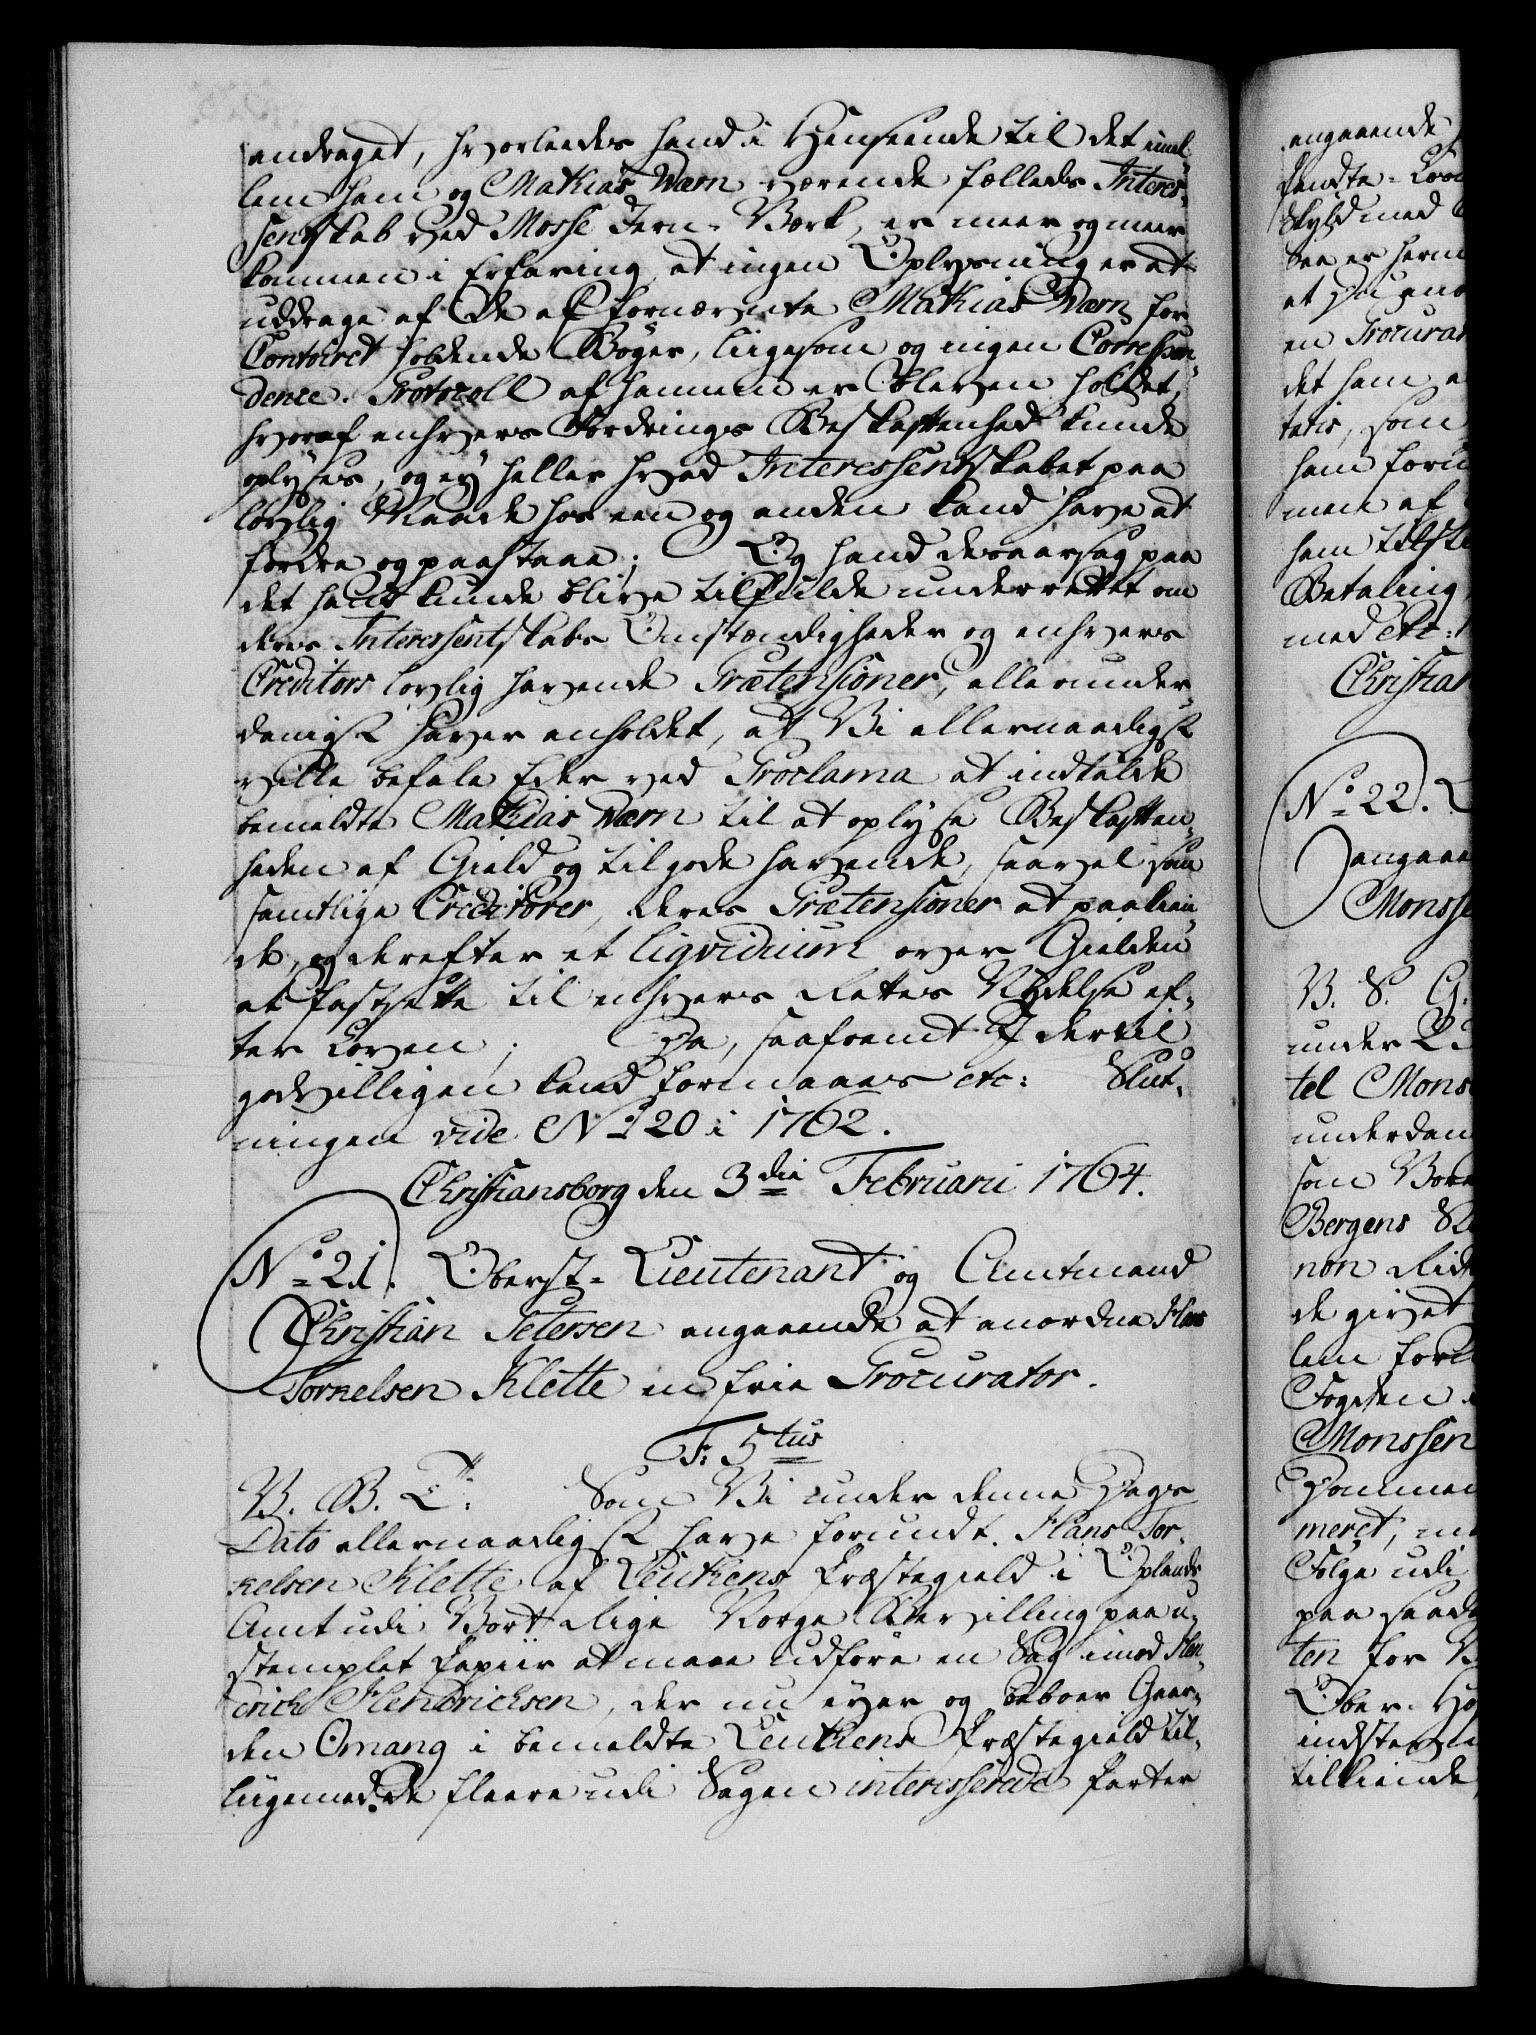 andraget, hvorledes hand i Henseende til det imel-
lem ham og Mathias Wærn værende fælleds Interes-
sentskab ved Mosse Jern-Værk, er meer og meer
kommen i Erfaring at ingen Oplysning er at
uddrage af De af fornævnte Mathias Wærn for
Contoiret holdende Bøger, liigesom og ingen Correspon-
dence-Protocoll af hannem er bleven holdet,
hvoraf enhvers Fordrings Beskaffenhed kunde
oplyses, og ey heller hvad Interessentskabet paa
lovlig Maade hos een og anden kand have at
fordre og paastaae; Og hand desaarsag paa
det hand kunde blive tilfulde underrettet om
deres Interessentskabs Omstændigheder og enhvers
Creditors lovlig havende Prætensioner, allerunder-
danigst haver anholdet, at Vi allernaadigst
ville befale Eder ved Proclama at indkalde
bemeldte Mathias Wærn til at oplyse Beskaffen-
heden af Gield og tilgode havende, saavel som
samtlige Creditorer, deres Prætensioner at paakien-
de, og derefter et liqvidium over Gielden
at fastsette til enhvers Rettes Nydelse ef-
ter Loven; Da, saafremt I dertil
godvilligen kand formaaes etc: Slut-
ningen vide No 20 i 1762.
Christiansborg den 3die Februarii 1764.
No 21. Oberst-Lieutenant og Amtmand
Christian Petersen angaaende at anordne Hans
Torkelsen Klette en frie Procurator.
F: 5tus
V. B. T. Som Vi under denne Dags
Dato allernaadigst have forundt Hans Tor-
kelsen Klette af Leutens Præstegield i Oplands
Amt udi Vort Rige Norge Bevilling paa u-
stemplet Papiir at maae udføre en Sag imod Hen-
drich Hendrichsen, der nu eyer og beboer Gaar-
den Omang i bemeldte Leutens Præstegield til-
liigemed de fleere udi Sagen interesserede Parter
angaaende
skyld med
at
en Procurat
det ham
teris, som
ham forun
mene af
ham tilst
Betaling
med etc:
Christian
No 22.
angaae
Monsse
V. S. G.
under
tel Mons
underdan
som
Bergens
non
de givet
lem
Fogden
Monssen
Dommen
meret,
Følge udi
paa saad
ten for V
Ober-Ho
indste
tilkiende